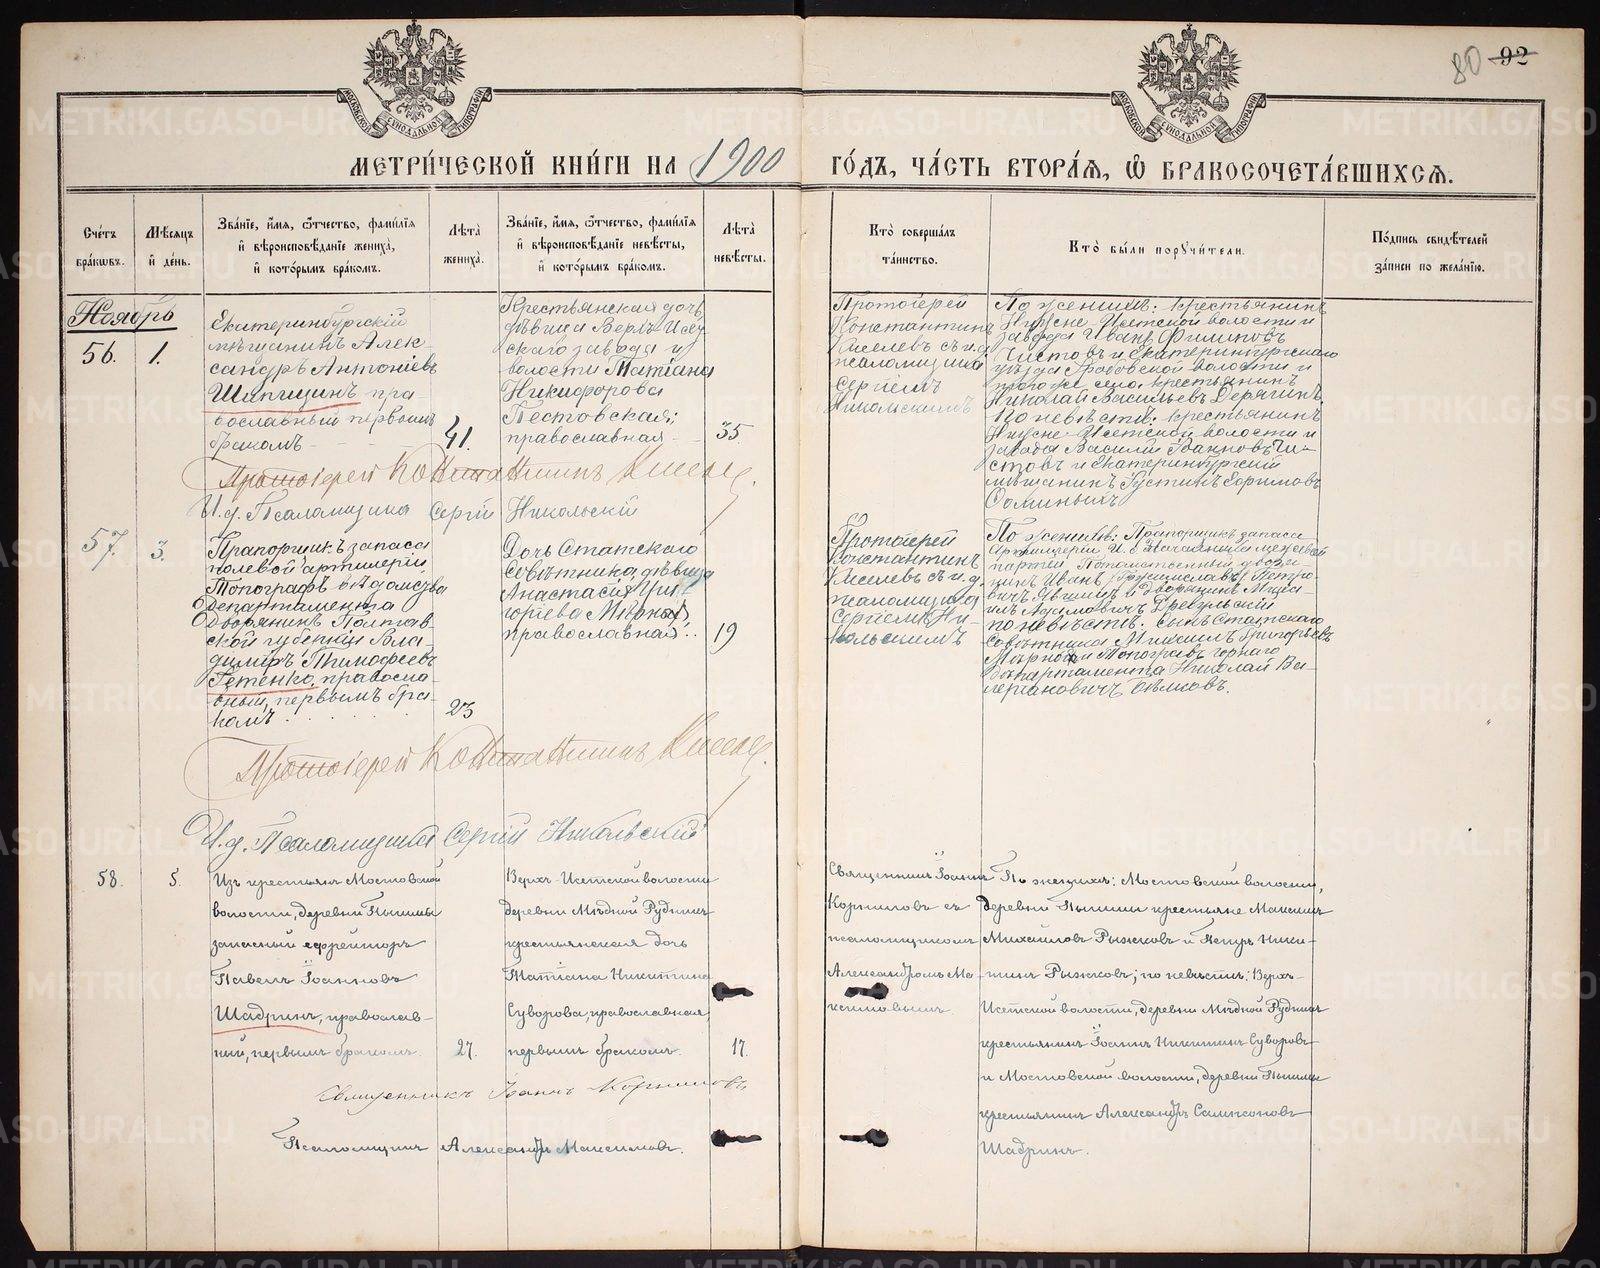 80 92
МЕТРИ́ЧЕСКОЙ КНИ́ГИ НА 1900 ГО́ДЪ, ЧА́СТЬ ВТОРА́Я, Ѿ БРАКОСОЧЕТА́ВШИХСЯ.
Сче́тъ бра́кѡвъ.
Мѣ́сяцъ и҆ де́нь.
Зва́нїе, и҆́мя, ѻ҆́тчество, фами́лїя и҆ вѣроисповѣ́данїе жениха̀, и҆ кото́рымъ бра́комъ.
Лѣ́та жениха̀.
Зва́нїе, и҆́мя, ѻ҆́тчество, фами́лїя и҆ вѣроисповѣ́данїе невѣ́сты, и҆ кото́рымъ бра́комъ.
Лѣ́та невѣ́сты.
Кто̀ соверша́лъ та́инство.
Кто̀ бы́ли порꙋчи́тели.
По́дпись свидѣ́телей за́писи по жела́нїю.
Ноябрь
56.
1.
Екатеринбургскій
мѣщанинъ Алек-
сандръ Антоніевъ
Шапицинъ пра-
вославный первымъ
бракомъ
41.
Крестьянская дочь
дѣвица Верхъ-Исет
скаго завода и
волости Татіана
Никифорова
Пестовская;
православная
35.
Протоіерей
Константинъ
Киселевъ съ и.д.
псаломщика
Сергіемъ
Никольскимъ
По женихѣ: крестьянинъ
Нижне-Исетской волости и
завода Иванъ Филиповъ
Чистовъ и Екатеринбургскаго
уѣзда Грабовской волости и
того же села крестьянинъ
Николай Васильевъ Дерягинъ.
По невѣстѣ: крестьянинъ
Нижне-Исетской волости и
завода Василій Ивановъ Чи-
стовъ и Екатеринбургскій
мѣщанинъ Густинъ Ефимовъ
Соминыхъ
Протоіерей Константинъ Киселе.
И.д. Псаломщика Сергій Никольскій
57.
3.
Прапорщикъ запаса
полевой артилеріи,
Топографъ вѣдомства
Департамента
Дворянинъ Полтав-
ской губерніи Вла-
диміръ Тимофеевъ
Гетенко, правосла-
вный, первымъ бра-
комъ
23
Дочь Статскаго
Совѣтника, дѣвица
Анастасія Гри-
горіева Мѣрная,
православная.
19
Протоіерей
Константинъ
Киселевъ съ и.д.
псаломщика
Сергіемъ Ни-
кольскимъ
По женихѣ: Прапорщикъ запаса
Артилеріи, И. д. Началника межевой
партіи Потомственный дворя-
нинъ Иванъ Петро-
вичъ Явшицъ и дворянинъ Миха-
илъ Адамовичъ Древульскій
по невѣстѣ: сынъ Статскаго
Совѣтника Михаилъ Григорьевъ
Мѣрной и Топографъ Горнаго
Департамента Николай Ва-
леріановичъ Бѣлковъ.
Протоіерей Константинъ Киселе.
И.д. Псаломщика Сергій Никольскій
58.
5.
Изъ крестьянъ Мостовской
волости, деревни Пышмы
запасный ефрейторъ
Павелъ Іоанновъ
Шадринъ, православ-
ный, первымъ бракомъ.
27.
Верхъ-Исетской волости
деревни Мѣдной Рудникъ
крестьянская дочь
Татіана Никитина
Суворова, православная,
первымъ бракомъ.
17.
Священникъ Іоаннъ
Корниловъ съ
псаломщикомъ
Александромъ Ма-
ксимовымъ.
По женихѣ: Мостовской волости,
деревни Пышмы крестьяне Максимъ
Михаиловъ Рыжковъ и Петръ Ники-
тинъ Рыжковъ; по невѣстѣ: Верхъ-
Исетской волости, деревни Мѣдной Рудникъ
крестьянинъ Іоаннъ Никитинъ Суворовъ
и Мостовской волости, деревни Пышмы
крестьянинъ Александръ Сампсоновъ
Шадринъ.
Священникъ Іоаннъ Корниловъ
Псаломщикъ Александръ Максимовъ.
METRIKI.GASO-URAL.RU